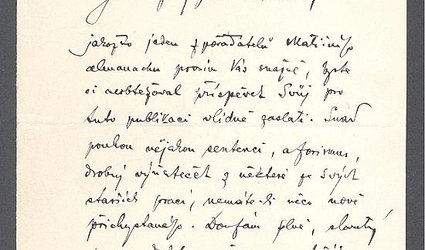 jakožto jeden z pořadatelů Matičního
almanachu prosím Vás snažně, byste
si neobtěžoval příspěvek Svůj pro
tuto publikaci vlídně zaslati. Snad
pouhou nějakou sentenci, aforismus,
drobný výňateček z některé ze svých
starších prací, nemáte-li něco nově
přichystaného. Doufám plně, slovutný